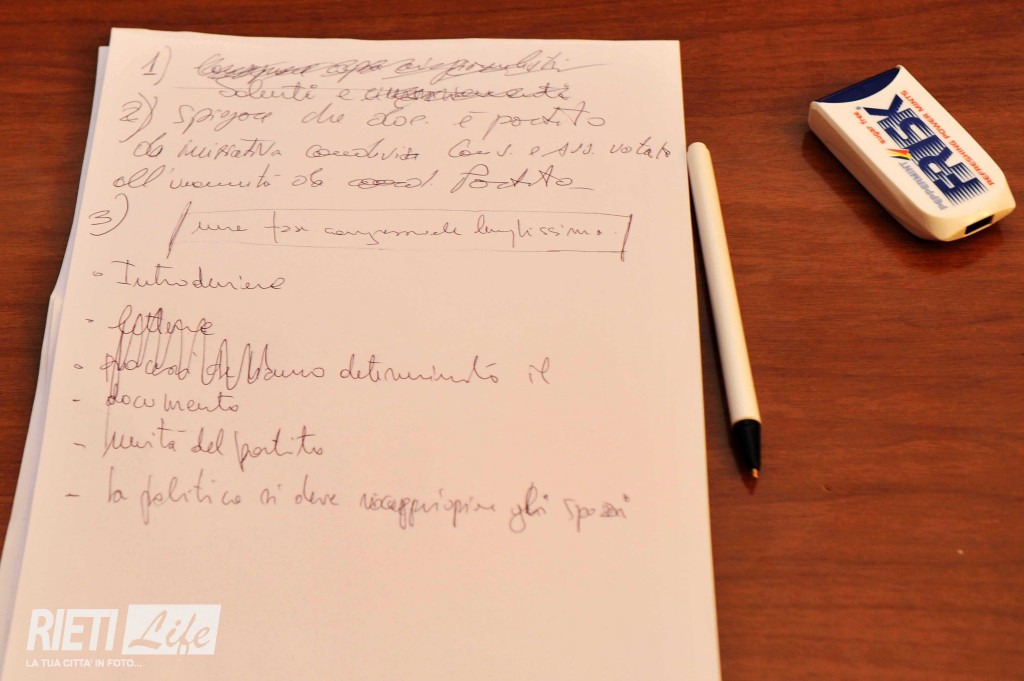 1)
saluti e
2) spiegare che doc. è partito
da iniziativa condivisa Cons. e ass. votato
all'unanimità da coord. Partito
3)
una fase congressuale lunghissima.
• Introduzione
• lettura
• hanno determinato il
- documento
- unità del partito
- la politica si deve riappropriare gli spazi
FRISK
PEPPERMINT
sugar free
REFRESHING POWER MINTS
RIETI Life
LA TUA CITTA' IN FOTO...